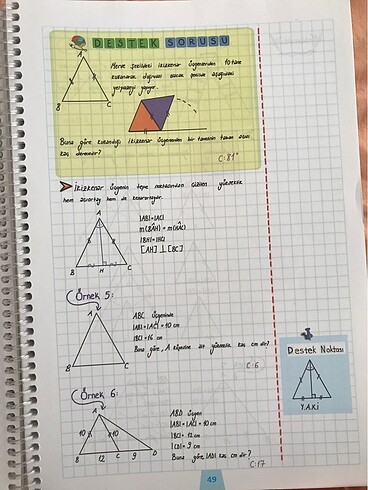 DESTEK SORUSU
A
Merve şekildeki ikizkenar üçgenlerden 10 tane
kullanarak doğrusal olacak şekilde aşağıdaki
yelpazeyi yapıyor.
B C
Buna göre kullandığı ikizkenar üçgenlerden bir tanesinin taban açısı
kaç derecedir?
C:81°
İkizkenar üçgenin tepe noktasından çizilen yükseklik
hem açıortay hem de kenarortaydır.
A
|AB|=|AC|
m(BÂH) = m(HÂC)
|BH|=|HC|
[AH] ⊥ [BC]
B H C
Örnek 5:
A
ABC üçgeninde
|AB|=|AC|= 10 cm
|BC|=16 cm
Buna göre, A köşesine ait yükseklik kaç cm dir?
B C
C:6
Destek Noktası
Y.A.K.İ
Örnek 6:
A
ABD üçgen
|AB|=|AC|= 10 cm
|BC|= 12 cm
|CD|= 9 cm
Buna göre, |AD| kaç cm dir?
10 10
B 12 C 9 D
C:17
49